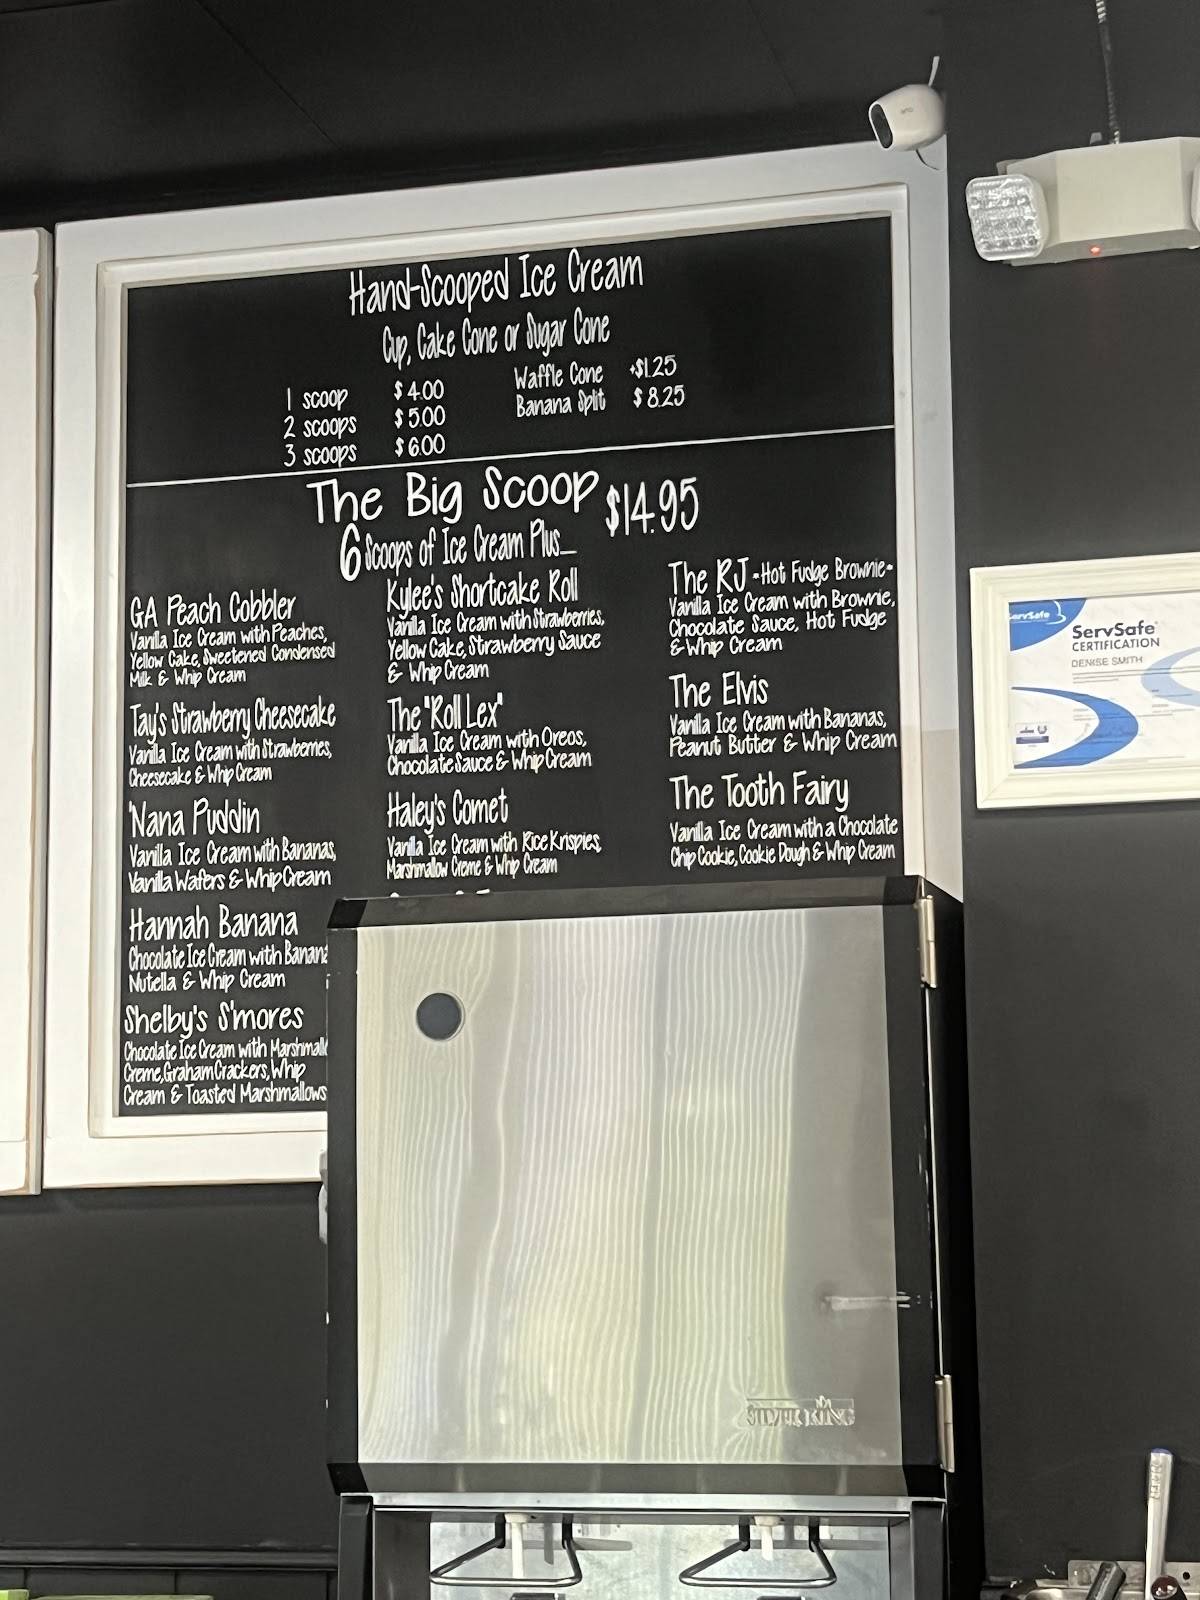 Hand-Scooped Ice Cream
Cup, Cake Cone or Sugar Cone
1 scoop $4.00
2 scoops $5.00
3 scoops $6.00
Waffle Cone +$1.25
Banana Split $8.25
The Big Scoop $14.95
6 Scoops of Ice Cream Plus...
GA Peach Cobbler
Vanilla Ice Cream with Peaches,
Yellow Cake, Sweetened Condensed
Milk & Whip Cream
Tay's Strawberry Cheesecake
Vanilla Ice Cream with Strawberries,
Cheesecake & Whip Cream
'Nana Puddin
Vanilla Ice Cream with Bananas,
Vanilla Wafers & Whip Cream
Hannah Banana
Chocolate Ice Cream with Banana
Nutella & Whip Cream
Shelby's S'mores
Chocolate Ice Cream with Marshmall
Creme, Graham Crackers, Whip
Cream & Toasted Marshmallows
Kylee's Shortcake Roll
Vanilla Ice Cream with Strawberries,
Yellow Cake, Strawberry Sauce
& Whip Cream
The "Roll Lex"
Vanilla Ice Cream with Oreos,
Chocolate Sauce & Whip Cream
Haley's Comet
Vanilla Ice Cream with Rice Krispies,
Marshmallow Creme & Whip Cream
The RJ -Hot Fudge Brownie-
Vanilla Ice Cream with Brownie,
Chocolate Sauce, Hot Fudge
& Whip Cream
The Elvis
Vanilla Ice Cream with Bananas,
Peanut Butter & Whip Cream
The Tooth Fairy
Vanilla Ice Cream with a Chocolate
Chip Cookie, Cookie Dough & Whip Cream
ServSafe
ServSafe®
CERTIFICATION
DENISE SMITH
SILVER KING
arlo